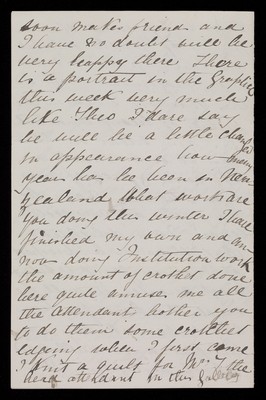 soon makes friends and
I have no doubt will be
very happy there There
is a portrait in the Graphic
this week very much
like Theo I dare say
he will be a little changed
in appearance how many
years has he been in New
Zealand What work are
you doing this winter I have
finished my own and am
now doing Institution work
the amount of crochet done
here quite amuses me all
the attendants bother you
to do them some crochet
edging when I first came
I knit a quilt for Mrs the
head attendant in this